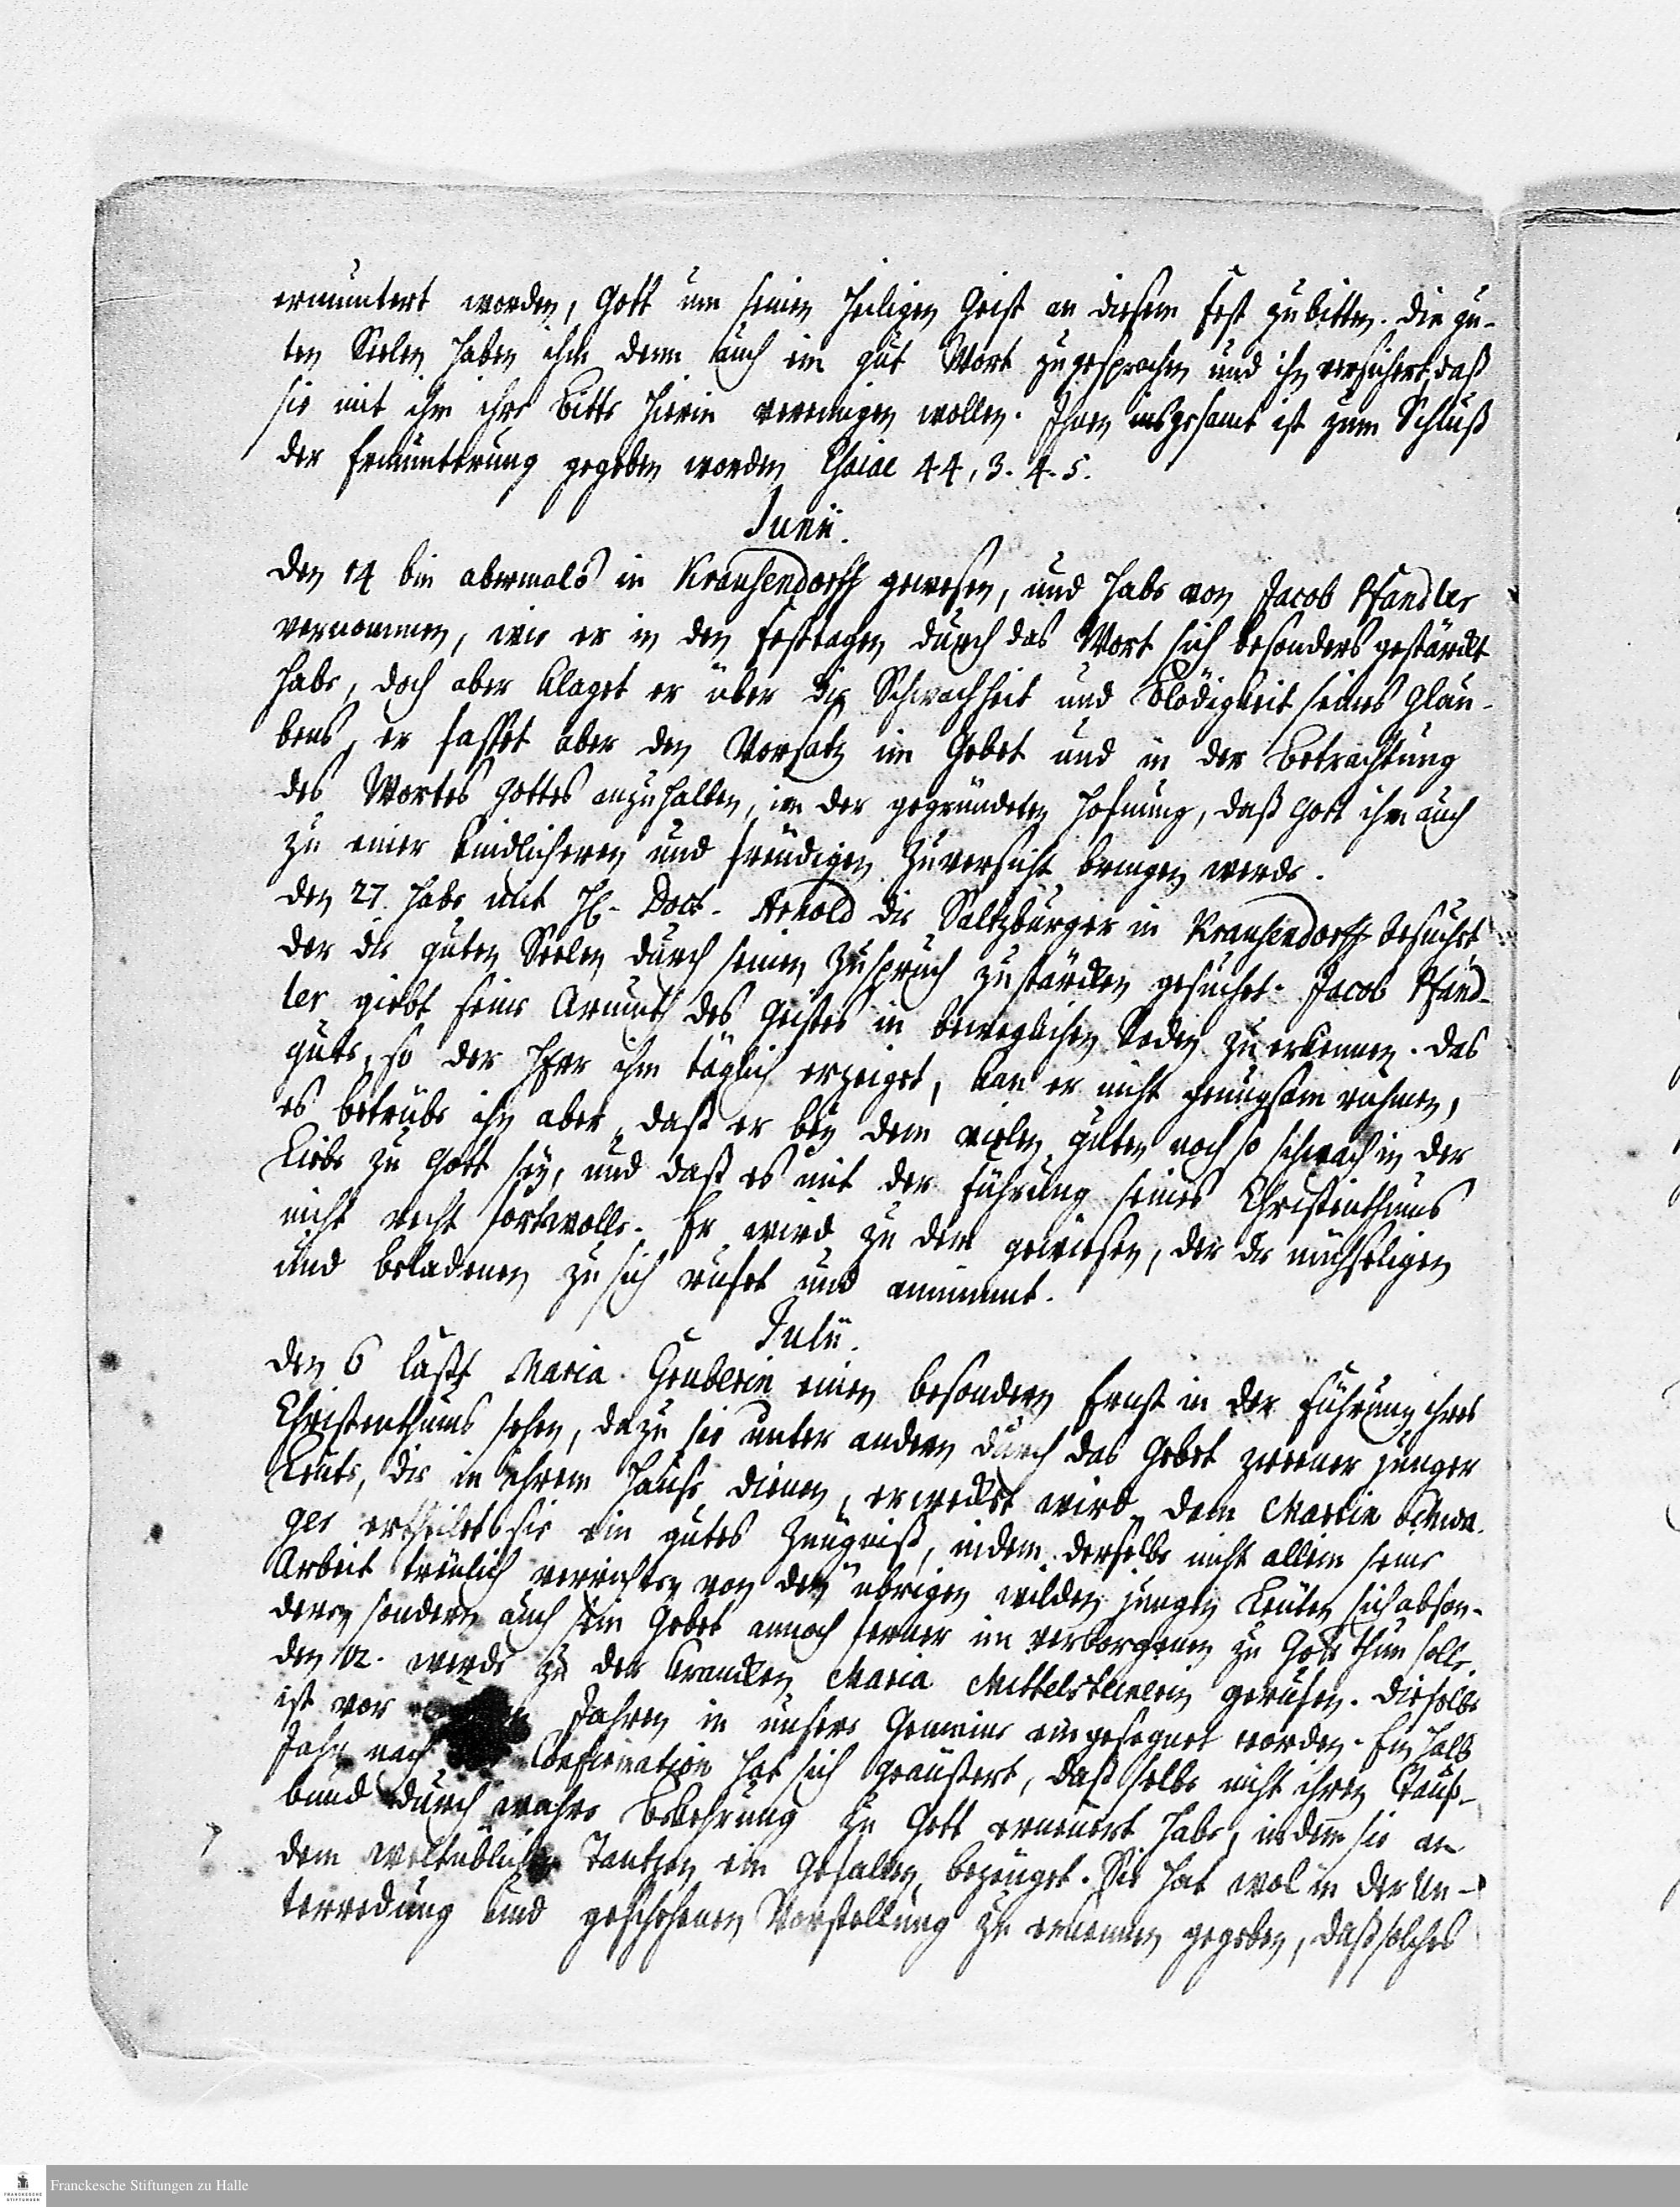 ermuntert worden, Gott um seinen heiligen Geist an diesem Fest zu bitten. Die gu-
ten Seelen haben ihm denn auch ein gut Wort zugesprochen und ihn versichert, daß
sie mit ihm ihre Bitte hierin vereinigen wollen. Ihnen insgesamt ist zum Schluß
der Ermunterung gegeben worden Esaiae 44, 3. 4. 5.
Junii.
Den 14 bin abermals in Krausendorff gewesen, und habe von Jacob Pfandler
vernommen, wie er in den Festtagen durch das Wort sich besonders gestärckt
habe, doch aber klaget er über die Schwachheit und Blödigkeit seines Glau-
bens, er fasset aber den Vorsatz im Gebet und in der Betrachtung
des Wortes Gottes anzuhalten, in der gegründeten Hofnung, daß Gott ihn auch
zu einer kindlicheren und freudigen Zuversicht bringen werde.
Den 27. habe mit H. Doct. Arnold die Saltzburger in Krausendorff besuchet,
der die guten Seelen durch seinen Zuspruch zu stärcken gesuchet. Jacob Pfand-
ler giebt seine Armuth des Geistes in beweglichen Reden zu erkennen. Das
gute, so der Herr ihm täglich erzeiget, kan er nicht genugsam rühmen,
es betrübe ihn aber, daß er bey dem vielen guten noch so schwach in der
Liebe zu Gott sey, und daß es mit der Führung seines Christenthums
nicht recht fortwolle. Er wird zu dem gewiesen, der die mühseligen
und beladenen zu sich rufet und annimmt.
Julii.
Den 6 lässt Maria Gruberin einen besondern Ernst in der Führung ihres
Christenthums sehen, dazu sie unter andern durch das Gebet zweener junger
Leute, die in ihrem Hause dienen, erwecket wird. Dem Martin Schwa-
ger ertheilet sie ein gutes Zeugniß, indem derselbe nicht allein seine
Arbeit treulich verrichte, von den übrigen wilden jungen Leuten sich abson-
dere, sondern auch sein Gebet annoch ferner im verborgenen zu Gott thun solle.
Den 12. werde zu der krancken Maria Mittelsteinerin gerufen. Dieselbe
ist vor Jahren in unsere Gemeine eingesegnet worden. Ein halb
Jahr nach Confirmation hat sich geäußert, daß selbe nicht ihren Tauf-
bund durch wahre Bekehrung zu Gott erneuert habe, indem sie an
dem weltüblichen Tantzen ein Gefallen bezeuget. Sie hat wol in der Un-
terredung und geschehenen Vorstellung zu erkennen gegeben, daß solches
Franckesche Stiftungen zu Halle